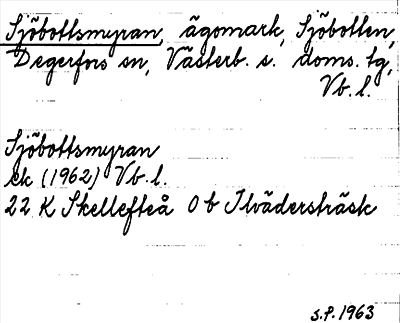 Sjöbottsmyran, ägomark, Sjöbotten,
Degerfors sn, Västerb. s. doms. tg,
Vb. l.
Sjöbottsmyran
ek (1962) Vb. l.
22 K Skellefteå 0 b Ilvädersträsk
S.P. 1963